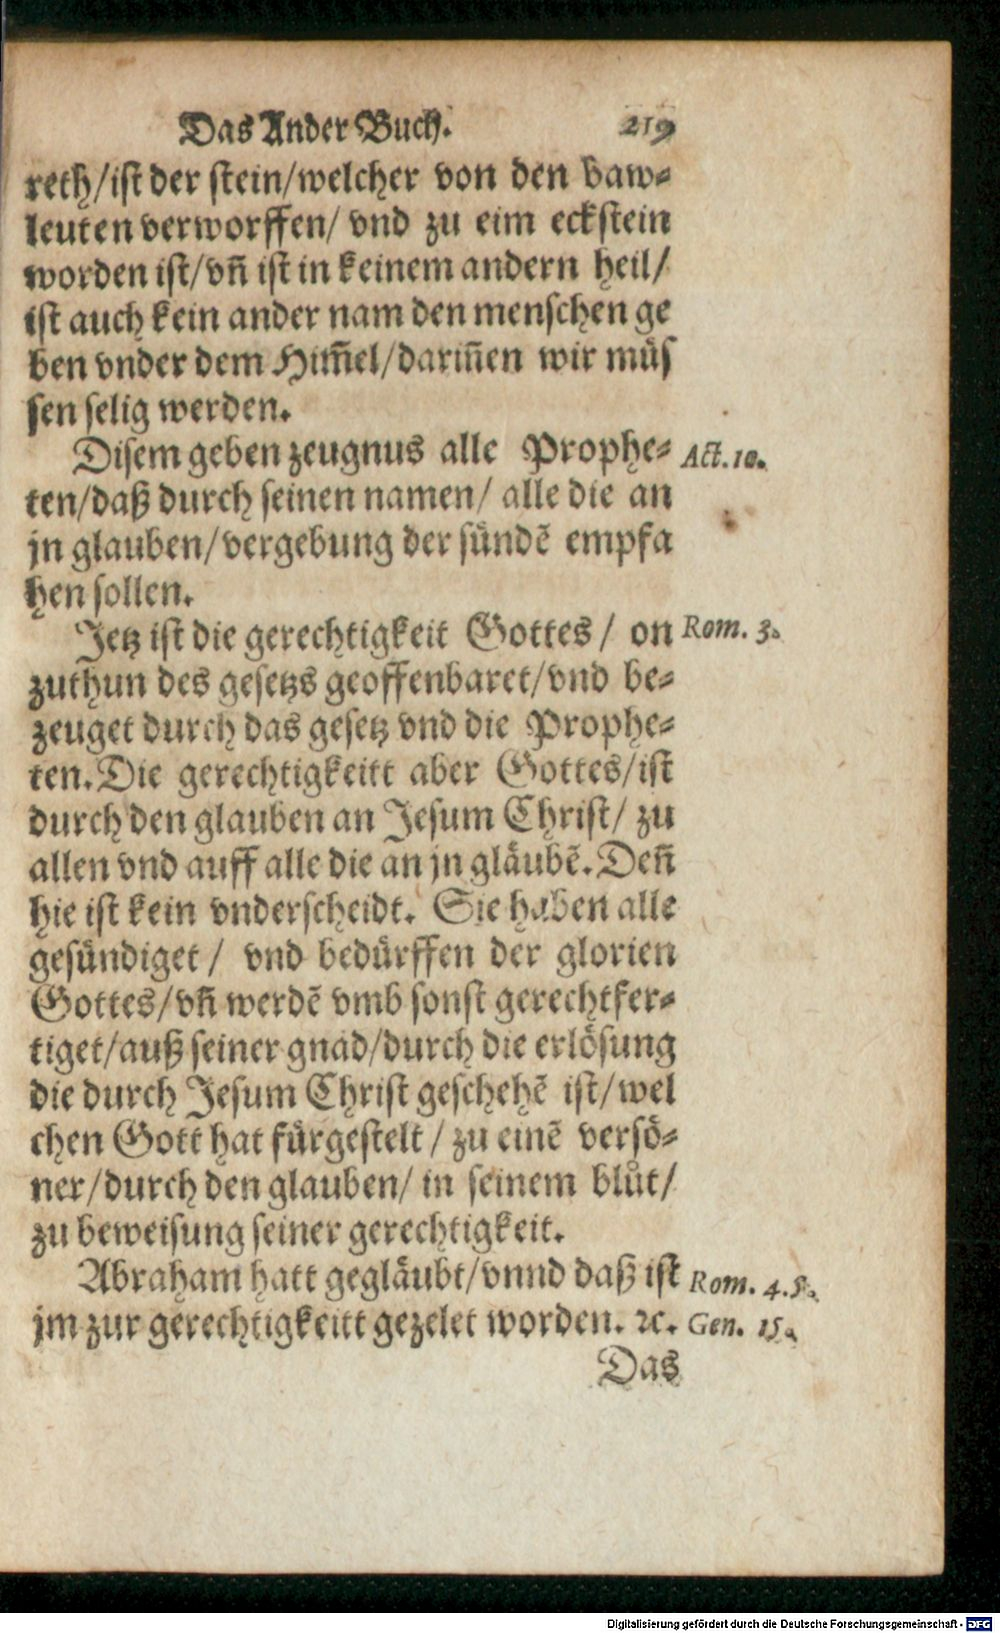 Das Ander Buch. 219
reth/ist der stein/welcher von den baw⸗
leuten verworffen/ vnd zu eim eckstein
worden ist/vñ ist in keinem andern heil/
ist auch kein ander nam den menschen ge
ben vnder dem Him̃el/darin̄en wir müs
sen selig werden.
Disem geben zeugnus alle Prophe⸗ Act. 10.
ten/daß durch seinen namen/ alle die an
jn glauben/vergebung der sündē empfa
hen sollen.
Jetz ist die gerechtigkeit Gottes/ on Rom. 3.
zuthun des gesetzs geoffenbaret/vnd be⸗
zeuget durch das gesetz vnd die Prophe⸗
ten. Die gerechtigkeitt aber Gottes/ist
durch den glauben an Jesum Christ/ zu
allen vnd auff alle die an jn gläubē. Deñ
hie ist kein vnderscheidt. Sie haben alle
gesündiget/ vnd bedürffen der glorien
Gottes/vñ werdē vmb sonst gerechtfer⸗
tiget/auß seiner gnad/durch die erlösung
die durch Jesum Christ geschehē ist/wel
chen Gott hat fürgestelt/ zu einē versö⸗
ner/durch den glauben/ in seinem blůt/
zu beweisung seiner gerechtigkeit.
Abraham hatt gegläubt/vnnd daß ist Rom. 4. 5.
jm zur gerechtigkeitt gezelet worden. ⁊c. Gen. 15.
Das
Digitalisierung gefördert durch die Deutsche Forschungsgemeinschaft - DFG